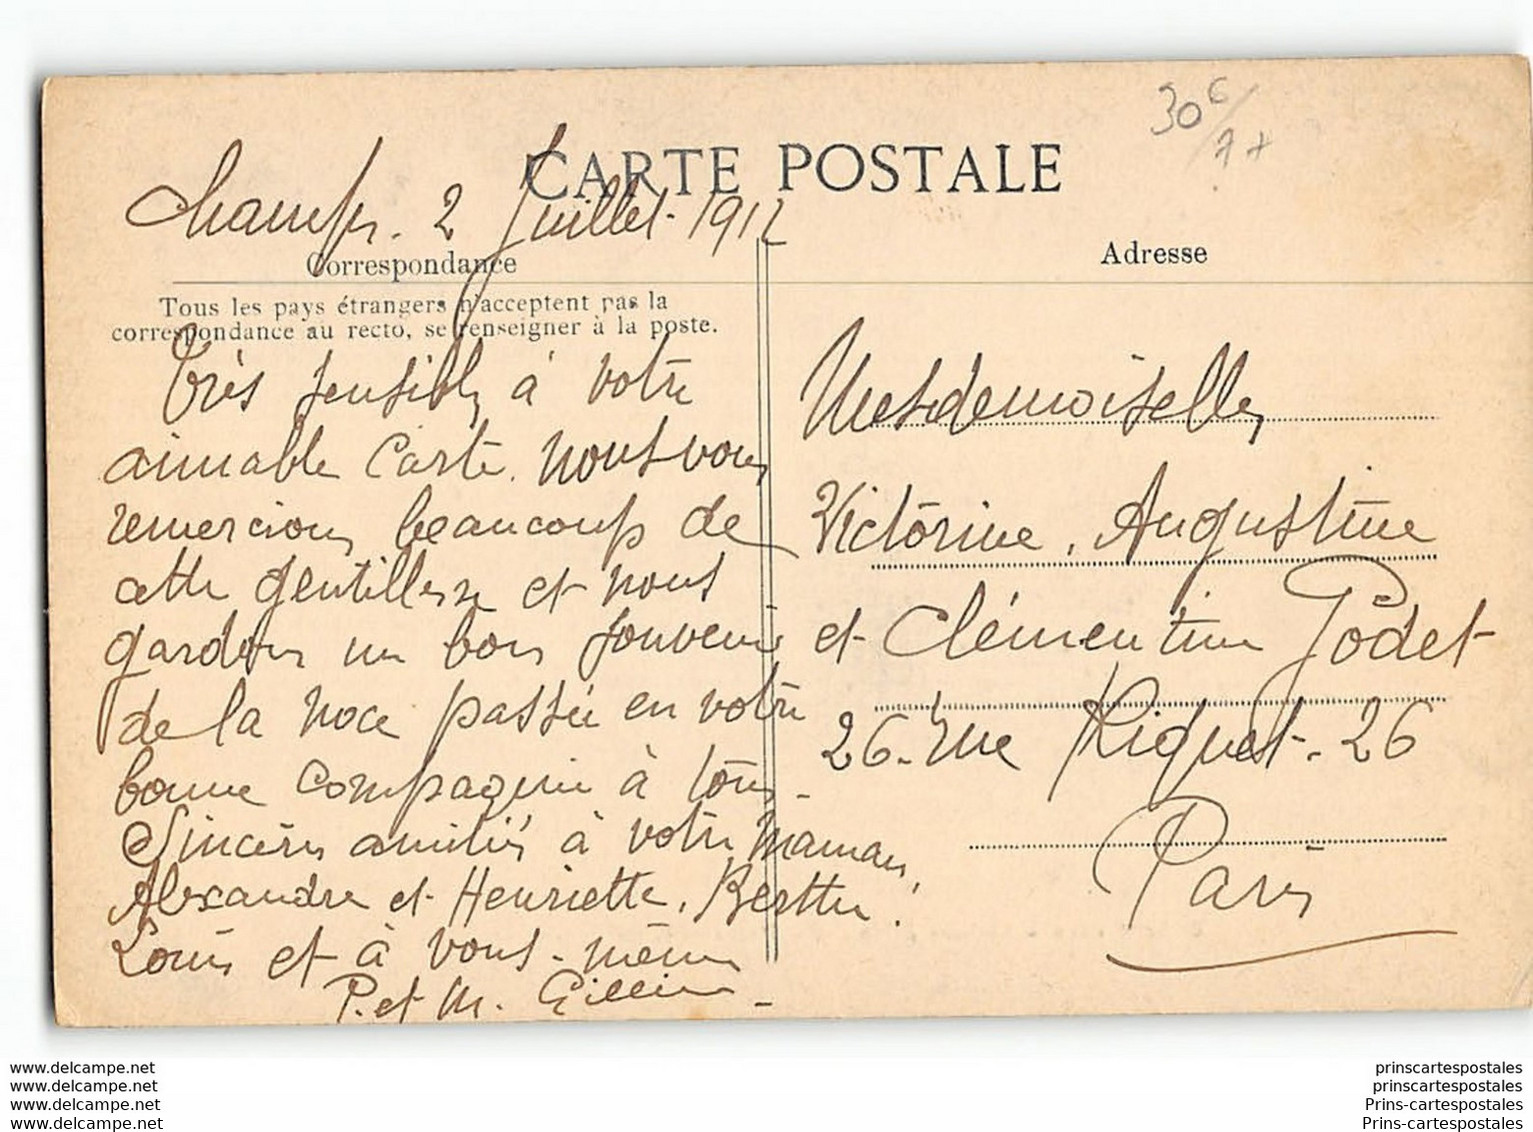 30 6/7 +
CARTE POSTALE
Champs. 2 Juillet 1912
Correspondance
Tous les pays étrangers n'acceptent pas la
correspondance au recto, se renseigner à la poste.
Très sensibles à votre
aimable Carte. nous vous
remercions beaucoup de
cette gentillesse et nous
gardons un bon souvenir
de la noce passée en votre
bonne compagnie à tous.
Sincères amitiés à votre Maman,
Alexandre et Henriette, Berthe,
Louis et à vous-même
P. et M.
Adresse
Mesdemoiselles
Victorine, Augustine
et Clémentine Godet
26. rue Riquet. 26
Paris
www.delcampe.net
www.delcampe.net
www.delcampe.net
www.delcampe.net
prinscartespostales
prinscartespostales
Prins-cartespostales
Prins-cartespostales